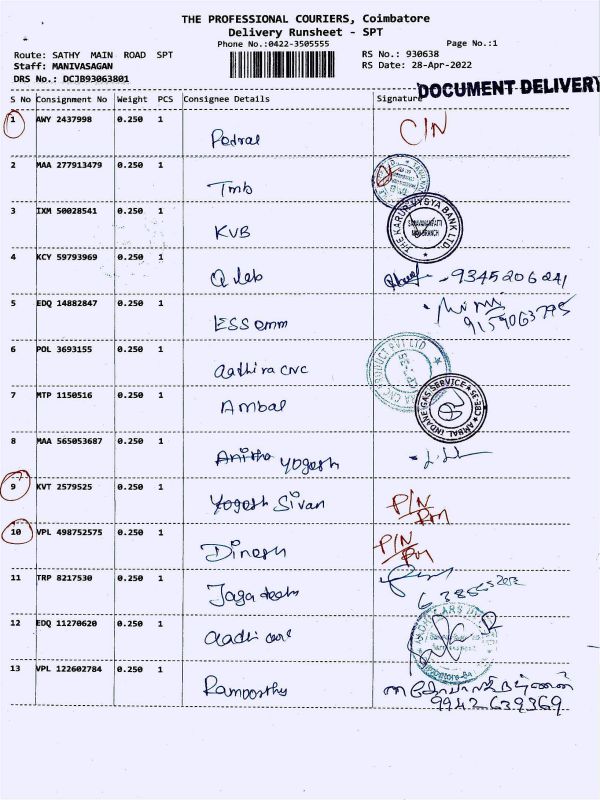 THE PROFESSIONAL COURIERS, Coimbatore
Delivery Runsheet - SPT
Phone No.:0422-3505555
Page No.:1
Route: SATHY MAIN ROAD SPT
RS No.: 930638
Staff: MANIVASAGAN
RS Date: 28-Apr-2022
DRS No.: DCJB93063801
DOCUMENT DELIVERY
S No Consignment No Weight PCS Consignee Details Signature
1 AWY 2437998 0.250 1 Pedral C/N
2 MAA 277913479 0.250 1 Tmb
3 IXM 50028541 0.250 1 KVB
THE KARUR VYSYA BANK LTD.
4 KCY 59793969 0.250 1 - 9345206241
5 EDQ 14882847 0.250 1 ESSemm
9159063795
6 POL 3693155 0.250 1 Aathira CNC
CNC PRODUCT PVT LTD
7 MTP 1150516 0.250 1 Ambal
AMBAL INDANE GAS SERVICE
8 MAA 565053687 0.250 1 Anitha Yogesh
9 KVT 2579525 0.250 1 Yogesh Sivan P/N
10 VPL 498752575 0.250 1 Dinesh P/N
11 TRP 8217530 0.250 1 Jagadeesh
12 EDQ 11270620 0.250 1 Aadhi care
13 VPL 122602784 0.250 1 Ramoorthy
9942639369